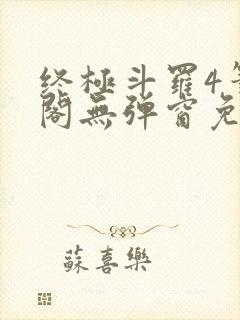 終極斗羅4
閣無彈窗免
蘇喜樂